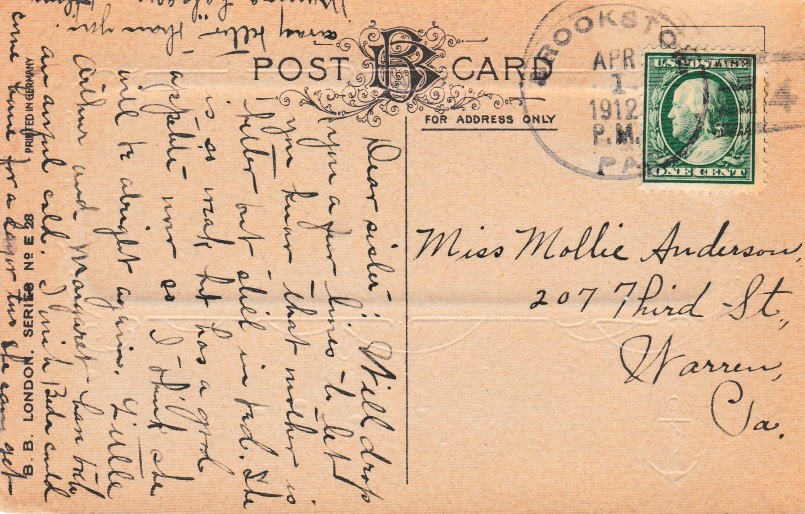 POST CARD
BB
FOR ADDRESS ONLY
BROOKSTON
APR
1
1912
P.M.
PA
4
U.S. POSTAGE
ONE CENT
Miss Mollie Anderson,
207 Third St,
Warren,
Pa.
Dear sister: Will drop
you a few lines to let
you know that mother is
better but still in bed. She
is so weak but has a good
appetite now so I think she
will be alright again. Little
Arthur and Margaret has both
an awful cold. I wish Beda could
come home for a day or two she can get
away
Thank you
B. B. LONDON. SERIES Nº E 28 PRINTED IN GERMANY